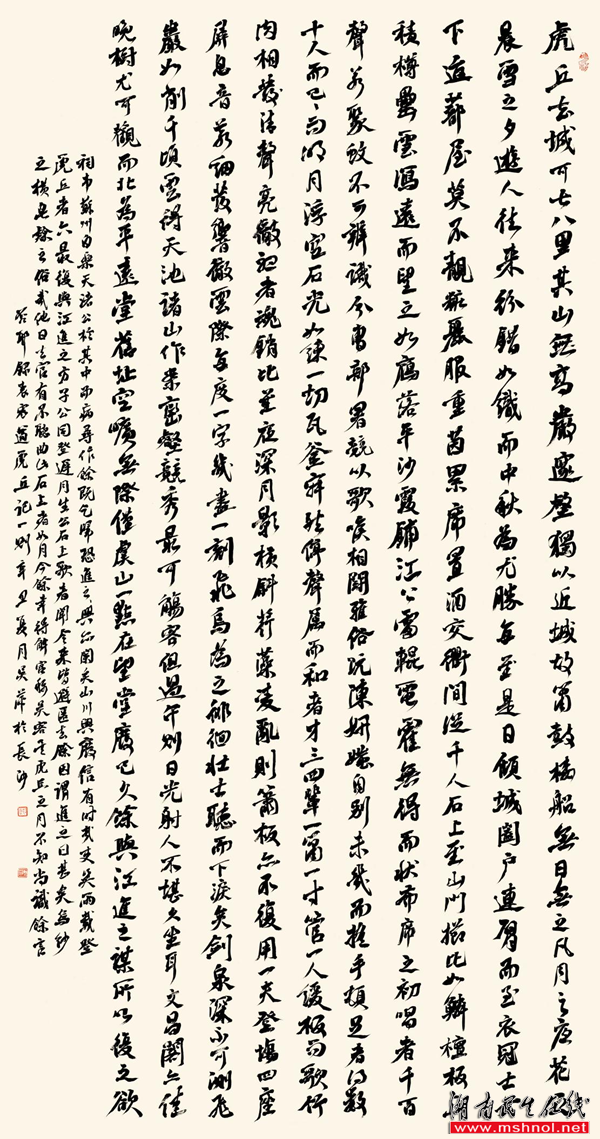 虎丘去城可七八里其山無高巖邃壑獨以近城故簫鼓樓船無日無之凡月之夜花
晨雪之夕遊人往來紛錯如織而中秋為尤勝每至是日傾城闔戶連臂而至衣冠士
下迨蔀屋莫不靚妝麗服重茵累席置酒交衢間從千人石上至山門櫛比如鱗檀板
積樽罍雲瀉遠而望之如雁落平沙霞鋪江上雷輥電霍無得而狀布席之初唱者千百
聲若聚蚊不可辨識分曹部署競以歌喉相鬥雅俗既陳妍媸自別未幾而搖手頓足者得數
十人而已已而明月浮空石光如練一切瓦釜寂然停聲屬而和者才三四輩一簫一寸管一人緩板而歌竹
肉相發清聲亮徹聽者魂銷比至夜深月影橫斜荇藻凌亂則簫板亦不復用一夫登場四座
屏息音若細髮響徹雲際每度一字幾盡一刻飛鳥為之徘徊壯士聽而下淚矣劍泉深不可測飛
巖如削千頃雲得天池諸山作案巒壑競秀最可觴客但過午則日光射人不堪久坐耳文昌閣亦佳
晚樹尤可觀而北為平遠堂舊址空曠無際僅虞山一點在望堂廢已久餘與江進之謀所以復之欲
祠韋蘇州白樂天諸公於其中而病尋作餘既乞歸恐進之興亦闌矣山川興廢信有時哉吏吳兩載登
虎丘者六最後與江進之方子公同登遲月生公石上歌者聞令來皆避匿去餘因謂進之曰甚矣烏紗
之橫皂隸之俗哉他日去官有不聽曲此石上者如月今餘幸得解官稱吳客矣虎丘之月不知尚識餘言
否耶 錄袁宏道虎丘記一則 辛丑夏月吳 於長沙
湖南民生在线
www.mshnol.net